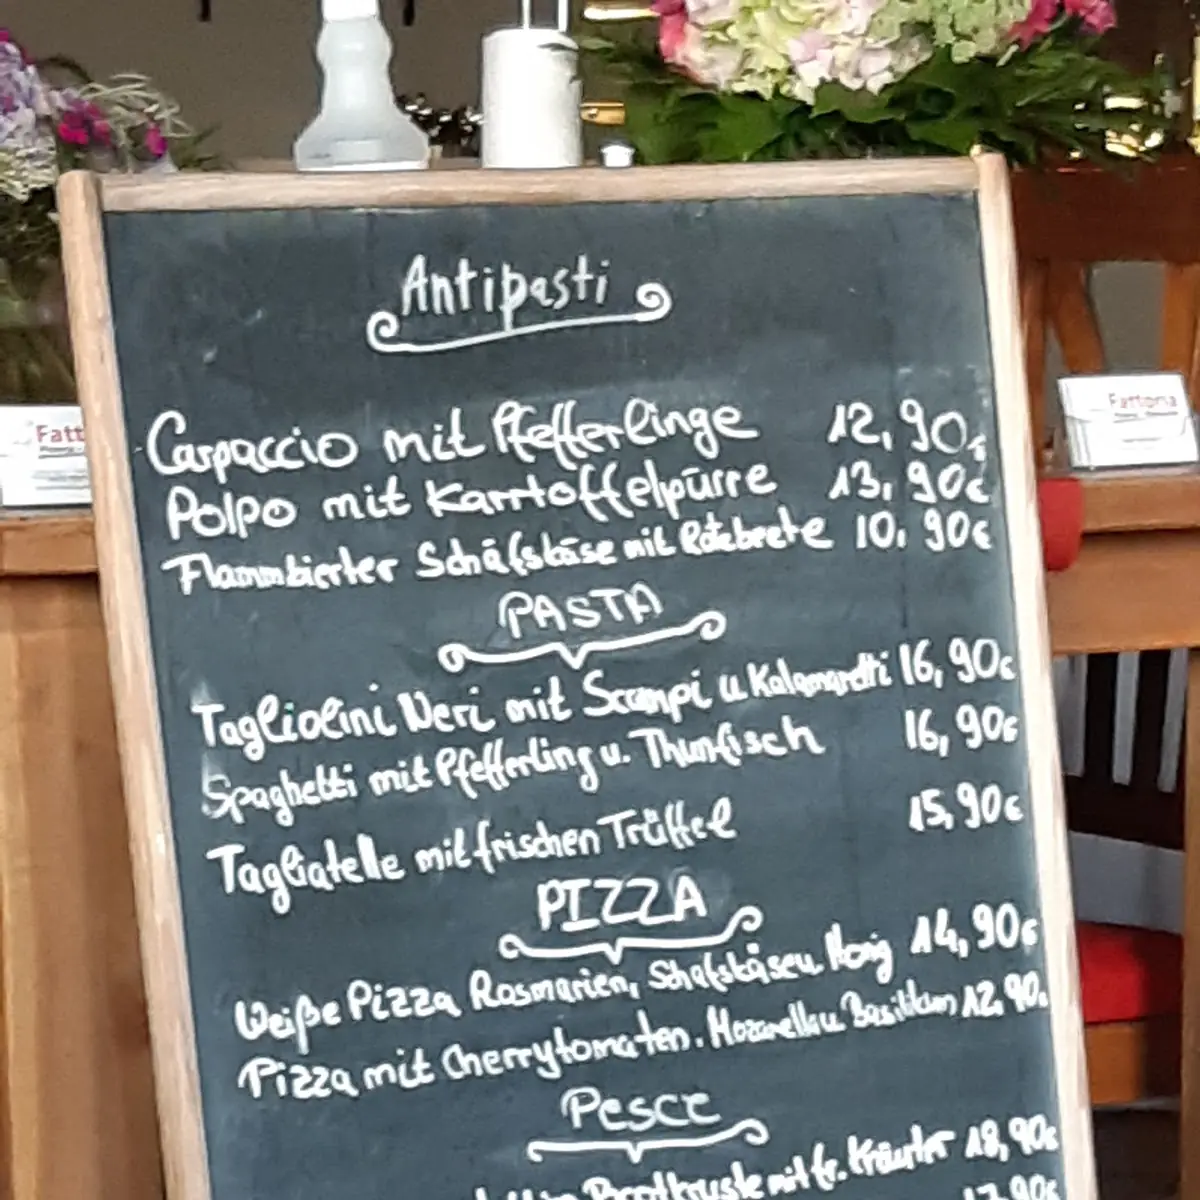 Antipasti
Carpaccio mit Pfefferlinge 12,90€
Polpo mit Karrtoffelpürre 13,90€
Flammbierter Schäfskäse mit Rotebeete 10,90€
PASTA
Tagliolini Neri mit Scampi u Kalamaretti 16,90€
Spaghetti mit Pfefferling u. Thunfisch 16,90€
Tagliatelle mit frischen Trüffel 15,90€
PIZZA
Weiße Pizza Rosmarien, Schafskäse u Honig 14,90€
Pizza mit Cherrytomaten. Mozarella u Basilikum 12,90
Pesce
Brotkruste mit fr. Kräuter 18,90€
17,90€
Fatt
Fattoria